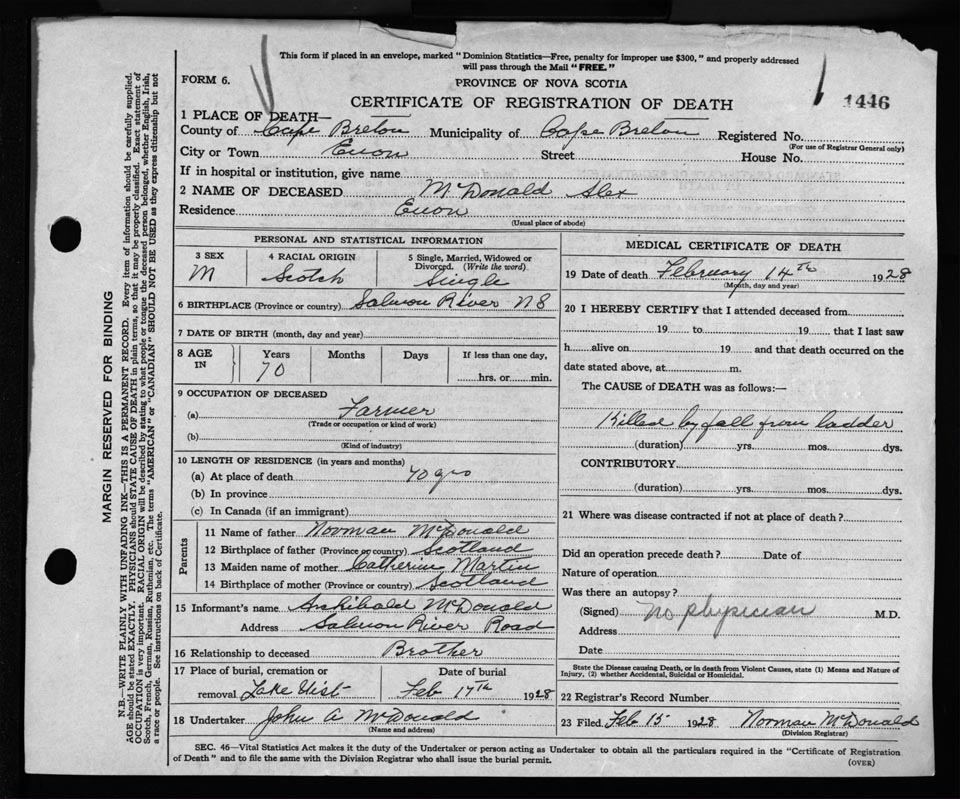 This form if placed in an envelope, marked "Dominion Statistics—Free, penalty for improper use $300," and properly addressed
will pass through the Mail "FREE."
FORM 6.
PROVINCE OF NOVA SCOTIA
CERTIFICATE OF REGISTRATION OF DEATH
1446
1 PLACE OF DEATH—
County of Cape Breton Municipality of Cape Breton Registered No.
(For use of Registrar General only)
City or Town Enon Street House No.
If in hospital or institution, give name
2 NAME OF DECEASED McDonald Alex
Residence Enon
(Usual place of abode)
PERSONAL AND STATISTICAL INFORMATION
3 SEX
M
4 RACIAL ORIGIN
Scotch
5 Single, Married, Widowed or
Divorced. (Write the word)
Single
6 BIRTHPLACE (Province or country) Salmon River NS
7 DATE OF BIRTH (month, day and year)
8 AGE IN
Years
70
Months
Days
If less than one day,
hrs. or min.
9 OCCUPATION OF DECEASED
(a) Farmer
(Trade or occupation or kind of work)
(b)
(Kind of industry)
10 LENGTH OF RESIDENCE (in years and months)
(a) At place of death 70 yrs
(b) In province
(c) In Canada (if an immigrant)
Parents
11 Name of father Norman McDonald
12 Birthplace of father (Province or country) Scotland
13 Maiden name of mother Catherine Martin
14 Birthplace of mother (Province or country) Scotland
15 Informant's name Archibald McDonald
Address Salmon River Road
16 Relationship to deceased Brother
17 Place of burial, cremation or
removal Lake Uist
Date of burial
Feb 17th 1928
18 Undertaker John A McDonald
(Name and address)
MEDICAL CERTIFICATE OF DEATH
19 Date of death February 14th 1928
(Month, day and year)
20 I HEREBY CERTIFY that I attended deceased from
19 to 19 that I last saw
h alive on 19 and that death occurred on the
date stated above, at m.
The CAUSE of DEATH was as follows:—
Killed by fall from ladder
(duration) yrs. mos. dys.
CONTRIBUTORY
(duration) yrs. mos. dys.
21 Where was disease contracted if not at place of death?
Did an operation precede death? Date of
Nature of operation
Was there an autopsy?
(Signed) no physician M.D.
Address
Date
State the Disease causing Death, or in death from Violent Causes, state (1) Means and Nature of
Injury, (2) whether Accidental, Suicidal or Homicidal.
22 Registrar's Record Number
23 Filed Feb 15 1928 Norman McDonald
(Division Registrar)
SEC. 46—Vital Statistics Act makes it the duty of the Undertaker or person acting as Undertaker to obtain all the particulars required in the "Certificate of Registration
of Death" and to file the same with the Division Registrar who shall issue the burial permit.
(OVER)
MARGIN RESERVED FOR BINDING
N.B.—WRITE PLAINLY WITH UNFADING INK—THIS IS A PERMANENT RECORD. Every item of information should be carefully supplied.
AGE should be stated EXACTLY. PHYSICIANS should STATE CAUSE OF DEATH in plain terms, so that it may be properly classified. Exact statement of
OCCUPATION is very important. RACIAL ORIGIN will be described by stating to what people or tongue the deceased person belonged, whether English, Irish,
Scotch, French, German, Russian, Ruthenian, etc. The terms "AMERICAN" or "CANADIAN" SHOULD NOT BE USED as they express citizenship but not
a race or people. See instructions on back of Certificate.